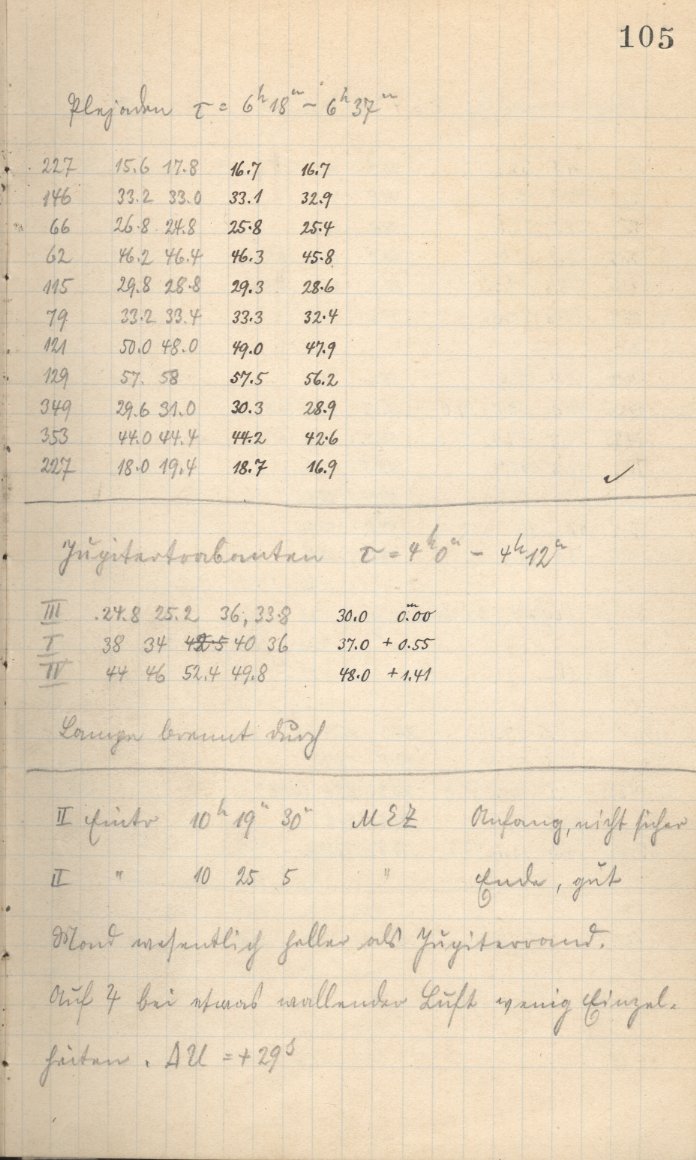 105
Plejaden τ = 6ʰ18ᵐ – 6ʰ37ᵐ
227 15.6 17.8 16.7 16.7
146 33.2 33.0 33.1 32.9
66 26.8 24.8 25.8 25.4
62 46.2 46.4 46.3 45.8
115 29.8 28.8 29.3 28.6
79 33.2 33.4 33.3 32.4
121 50.0 48.0 49.0 47.9
129 57. 58 57.5 56.2
349 29.6 31.0 30.3 28.9
353 44.0 44.4 44.2 42.6
227 18.0 19.4 18.7 16.9 ✓
Jupitertrabanten τ = 4ʰ0ᵐ – 4ʰ12ᵐ
III 24.8 25.2 36, 33.8 30.0 0.ᵐ00
I 38 34 40 36 37.0 + 0.55
IV 44 46 52.4 49.8 48.0 + 1.41
Lampe brennt durch
II Eintr 10ʰ 19ᵐ 30ˢ MEZ Anfang, nicht sicher
II " 10 25 5 " Ende, gut
Mond wesentlich heller als Jupiterrand.
Auf ♃ bei etwas wallender Luft wenig Einzel-
heiten. ΔU = + 29ˢ